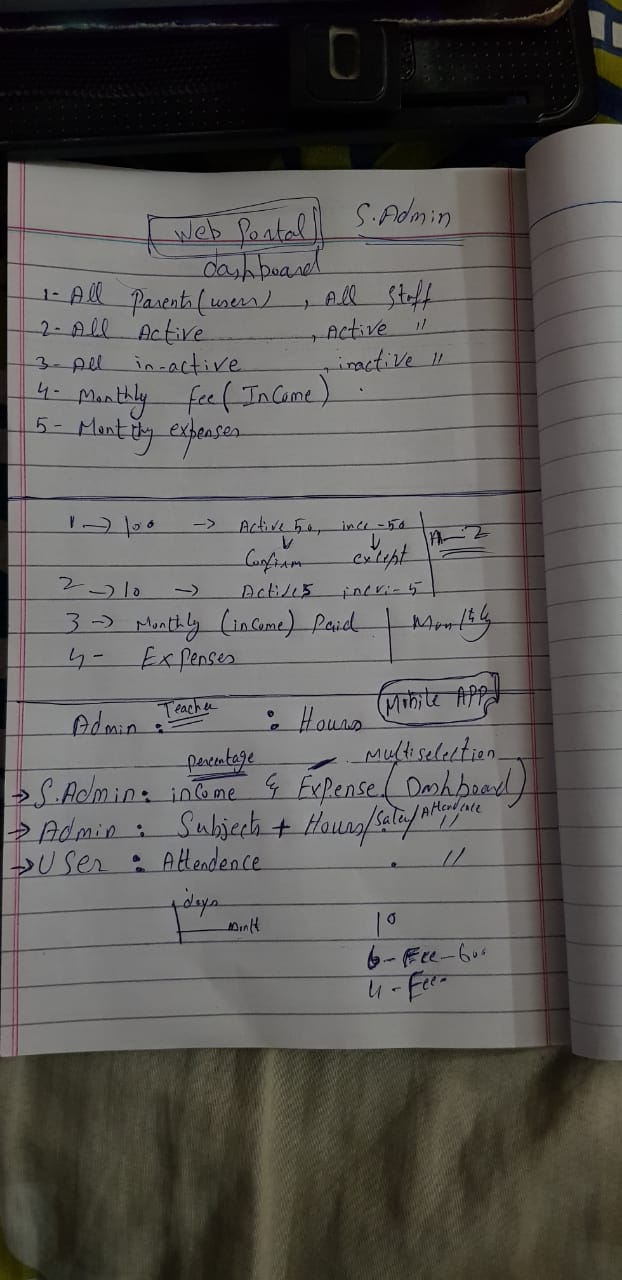 Web Portal S.Admin
dashboard
1- All Parents (users) , All Staff
2- All Active , Active "
3- All in-active , inactive "
4- Monthly Fee (InCome) .
5- Monthly expenses
1 → 100 → Active 50, -50
Confirm except
2 → 10 → - 5
3 → Monthly (income) Paid | Monthly
4 - Expenses
Mobile APP
Admin : Teacher : Hours
percentage Multiselection
→ S.Admin: income & Expense (Dashboard)
→ Admin : Subjects + Hours/ /Attendence "
→ User : Attendence . "
days
10
6 - Fee - 600
4 - Fee -